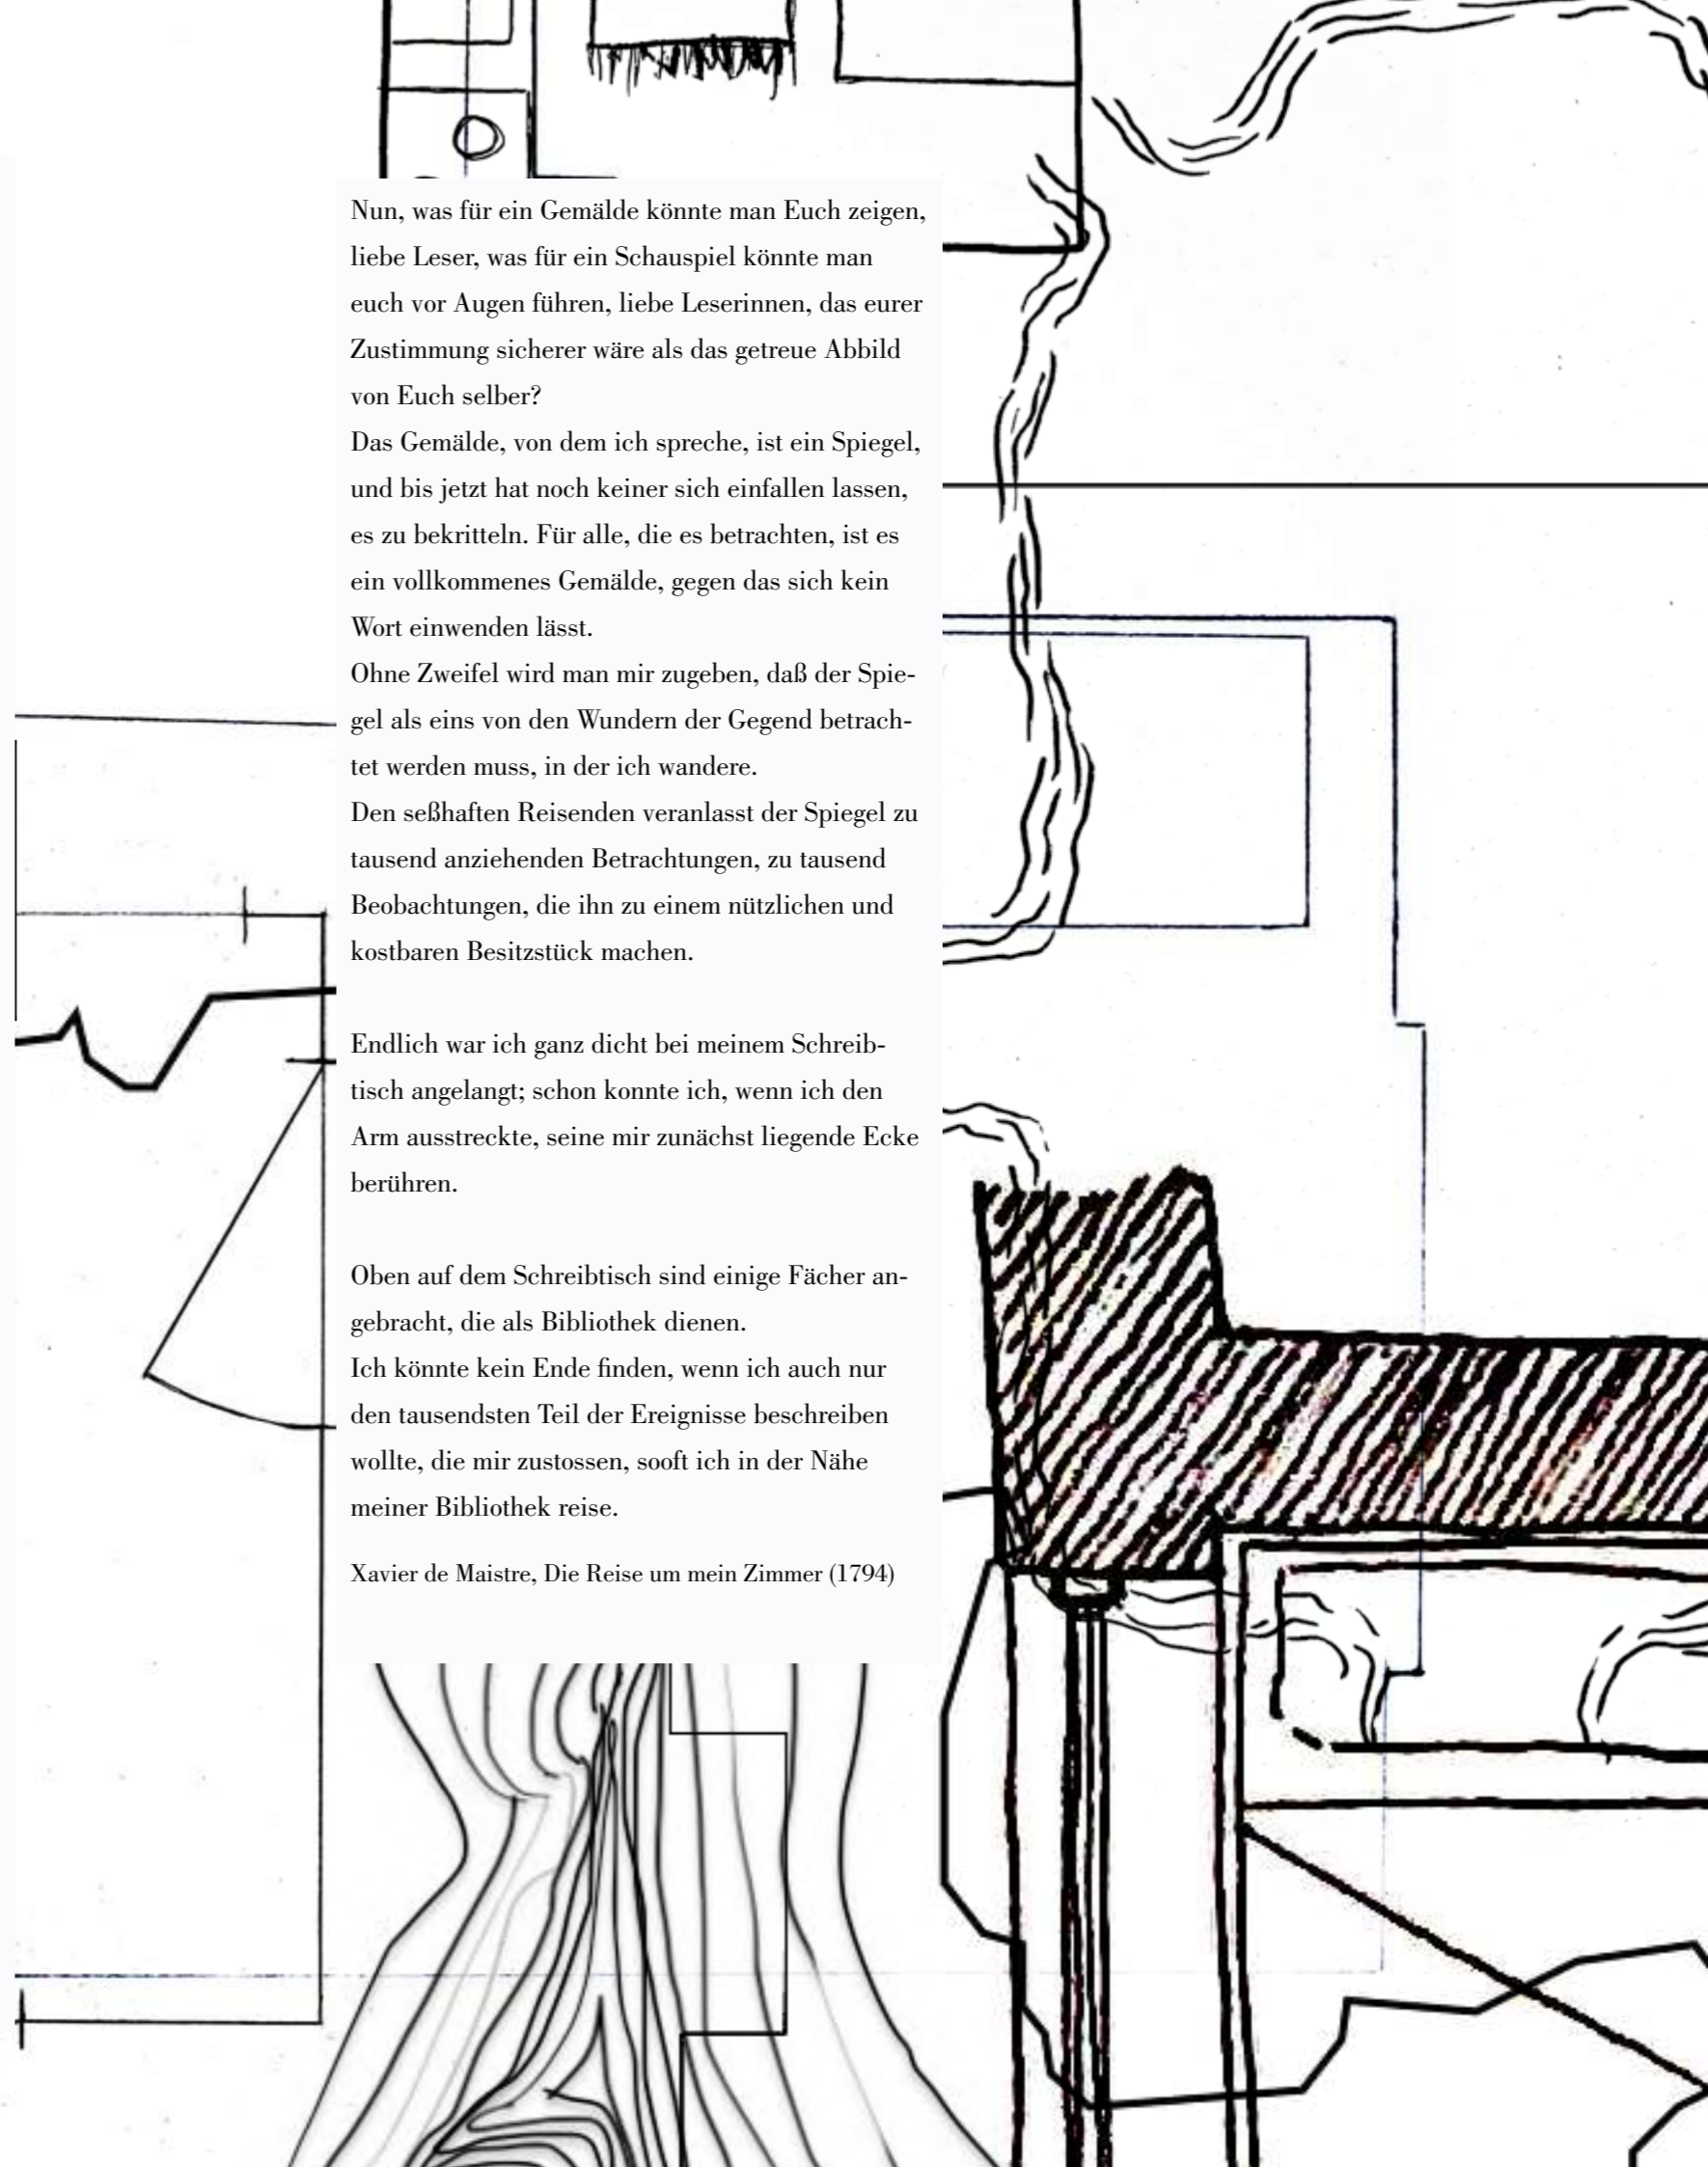 Nun, was für ein Gemälde könnte man Euch zeigen,
liebe Leser, was für ein Schauspiel könnte man
euch vor Augen führen, liebe Leserinnen, das eurer
Zustimmung sicherer wäre als das getreue Abbild
von Euch selber?
Das Gemälde, von dem ich spreche, ist ein Spiegel,
und bis jetzt hat noch keiner sich einfallen lassen,
es zu bekritteln. Für alle, die es betrachten, ist es
ein vollkommenes Gemälde, gegen das sich kein
Wort einwenden lässt.
Ohne Zweifel wird man mir zugeben, daß der Spie-
gel als eins von den Wundern der Gegend betrach-
tet werden muss, in der ich wandere.
Den seßhaften Reisenden veranlasst der Spiegel zu
tausend anziehenden Betrachtungen, zu tausend
Beobachtungen, die ihn zu einem nützlichen und
kostbaren Besitzstück machen.
Endlich war ich ganz dicht bei meinem Schreib-
tisch angelangt; schon konnte ich, wenn ich den
Arm ausstreckte, seine mir zunächst liegende Ecke
berühren.
Oben auf dem Schreibtisch sind einige Fächer an-
gebracht, die als Bibliothek dienen.
Ich könnte kein Ende finden, wenn ich auch nur
den tausendsten Teil der Ereignisse beschreiben
wollte, die mir zustossen, sooft ich in der Nähe
meiner Bibliothek reise.
Xavier de Maistre, Die Reise um mein Zimmer (1794)